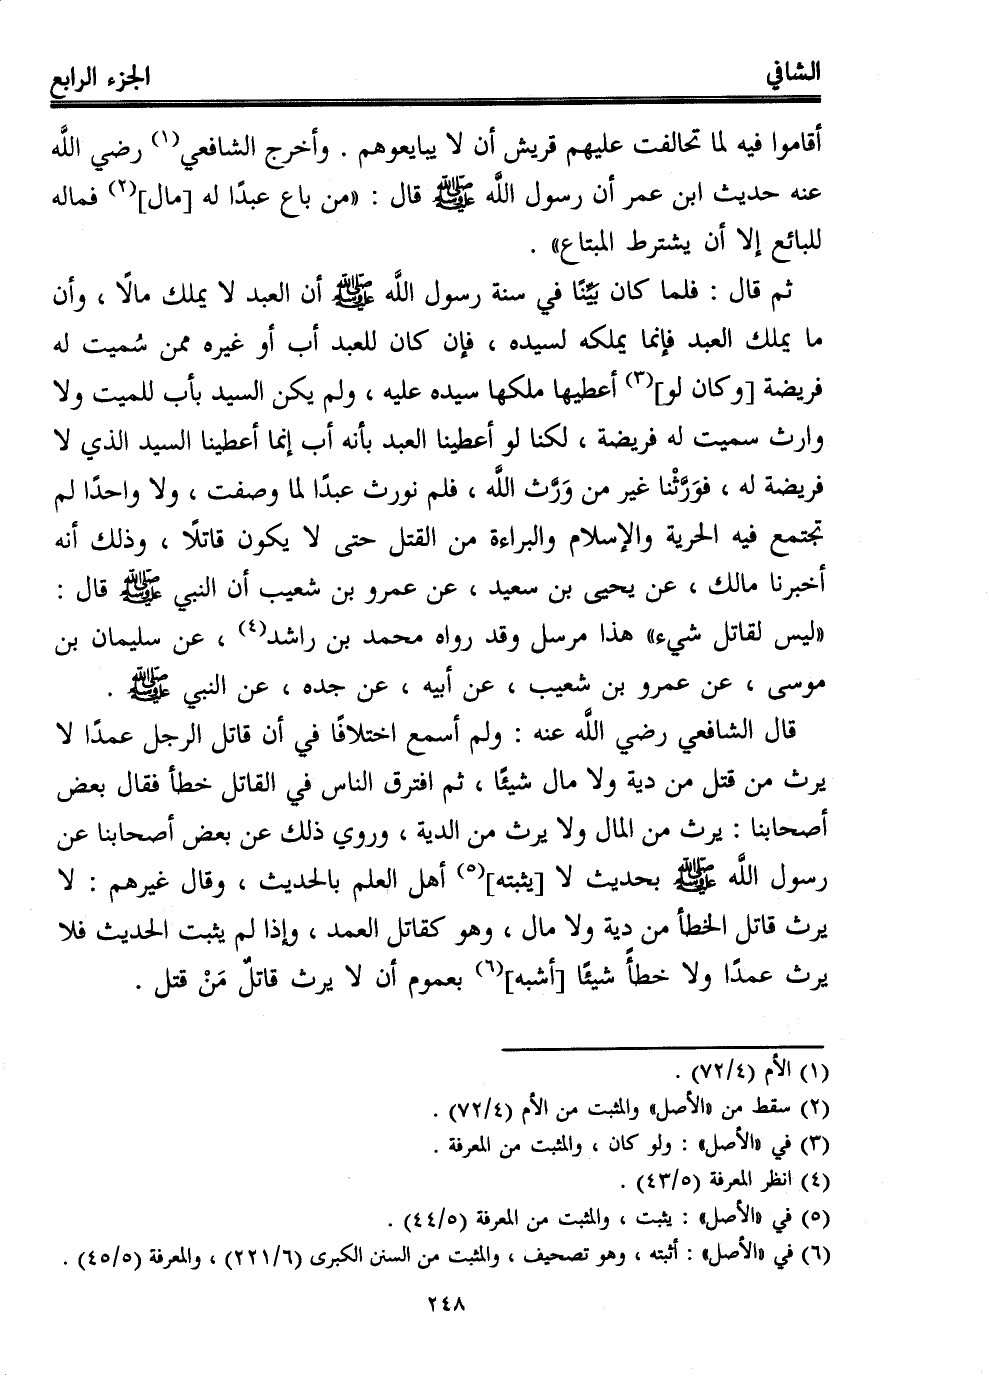 الشافي
الجزء الرابع
أقاموا فيه لما تحالفت عليهم قريش أن لا يبايعوهم . وأخرج الشافعي(١) رضي اللَّه
عنه حديث ابن عمر أن رسول اللَّه ﷺ قال : «من باع عبدًا له [مال](٢) فماله
للبائع إلا أن يشترط المبتاع» .
ثم قال : فلما كان بَيِّنًا في سنة رسول اللَّه ﷺ أن العبد لا يملك مالًا ، وأن
ما يملك العبد فإنما يملكه لسيده ، فإن كان للعبد أب أو غيره ممن سُميت له
فريضة [وكان لو](٣) أعطيها ملكها سيده عليه ، ولم يكن السيد بأب للميت ولا
وارث سميت له فريضة ، لكنا لو أعطينا العبد بأنه أب إنما أعطينا السيد الذي لا
فريضة له ، فوَرَّثْنا غير من وَرَّث اللَّه ، فلم نورث عبدًا لما وصفت ، ولا واحدًا لم
تجتمع فيه الحرية والإسلام والبراءة من القتل حتى لا يكون قاتلًا ، وذلك أنه
أخبرنا مالك ، عن يحيى بن سعيد ، عن عمرو بن شعيب أن النبي ﷺ قال :
«ليس لقاتل شيء» هذا مرسل وقد رواه محمد بن راشد(٤) ، عن سليمان بن
موسى ، عن عمرو بن شعيب ، عن أبيه ، عن جده ، عن النبي ﷺ .
قال الشافعي رضي اللَّه عنه : ولم أسمع اختلافًا في أن قاتل الرجل عمدًا لا
يرث من قتل من دية ولا مال شيئًا ، ثم افترق الناس في القاتل خطأ فقال بعض
أصحابنا : يرث من المال ولا يرث من الدية ، وروي ذلك عن بعض أصحابنا عن
رسول اللَّه ﷺ بحديث لا [يثبته](٥) أهل العلم بالحديث ، وقال غيرهم : لا
يرث قاتل الخطأ من دية ولا مال ، وهو كقاتل العمد ، وإذا لم يثبت الحديث فلا
يرث عمدًا ولا خطأً شيئًا [أشبه](٦) بعموم أن لا يرث قاتلٌ مَنْ قتل .
(١) الأم (٧٢/٤) .
(٢) سقط من «الأصل» والمثبت من الأم (٧٢/٤) .
(٣) في «الأصل» : ولو كان ، والمثبت من المعرفة .
(٤) انظر المعرفة (٤٣/٥) .
(٥) في «الأصل» : يثبت ، والمثبت من المعرفة (٤٤/٥) .
(٦) في «الأصل» : أثبته ، وهو تصحيف ، والمثبت من السنن الكبرى (٢٢١/٦) ، والمعرفة (٤٥/٥) .
٢٤٨